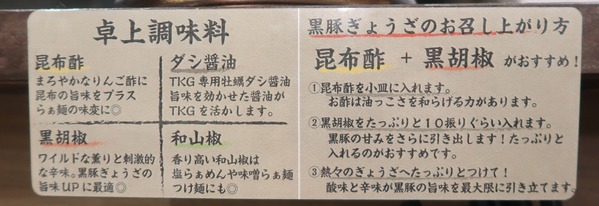 卓上調味料
昆布酢
まろやかなりんご酢に
昆布の旨味をプラス
らぁ麺の味変に◎
ダシ醤油
TKG専用牡蠣ダシ醤油
旨味を効かせた醤油が
TKGを活かします。
黒胡椒
ワイルドな薫りと刺激的
な辛味。黒豚ぎょうざの
旨味UPに最適◎
和山椒
香り高い和山椒は
塩らぁめんや味噌らぁ麺
つけ麺にも◎
黒豚ぎょうざのお召し上がり方
昆布酢 + 黒胡椒 がおすすめ!
①昆布酢を小皿に入れます。
お酢は油っこさを和らげる力があります。
②黒胡椒をたっぷりと10振りぐらい入れます。
黒豚の甘みをさらに引き出します!たっぷりと
入れるのがおすすめです。
③熱々のぎょうざへたっぷりとつけて!
酸味と辛味が黒豚の旨味を最大限に引き立てます。